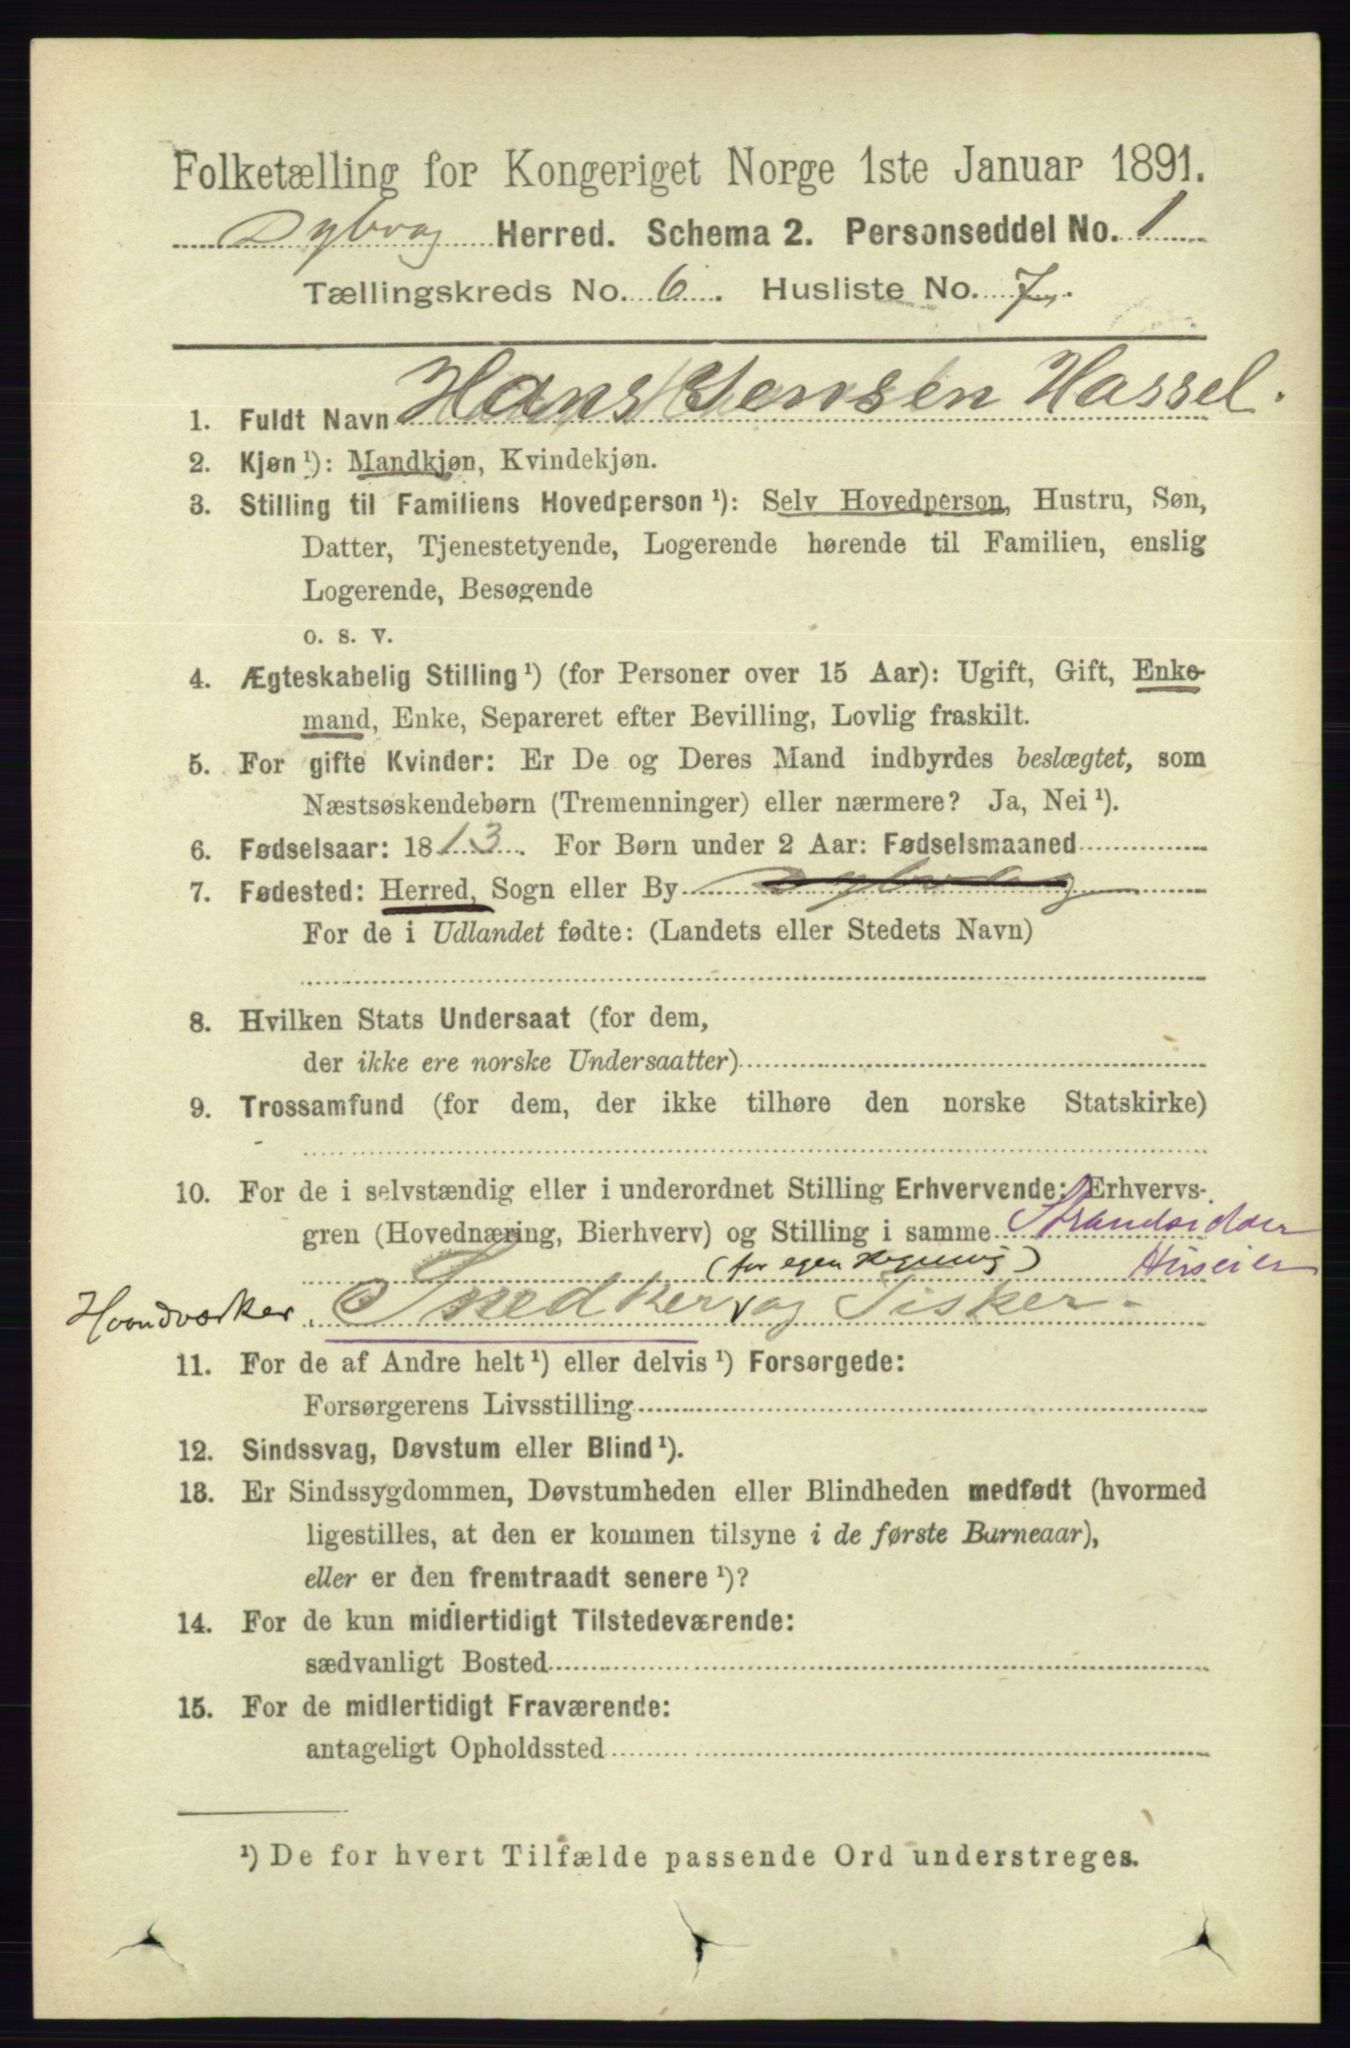 Folketælling for Kongeriget Norge 1ste Januar 1891.
Dybvag Herred. Schema 2. Personseddel No. 1
Tællingskreds No. 6. Husliste No. 7.
1. Fuldt Navn Hans Jensen Hassel.
2. Kjøn ¹): Mandkjøn, Kvindekjøn.
3. Stilling til Familiens Hovedperson ¹): Selv Hovedperson, Hustru, Søn,
Datter, Tjenestetyende, Logerende hørende til Familien, enslig
Logerende, Besøgende
o. s. v.
4. Ægteskabelig Stilling ¹) (for Personer over 15 Aar): Ugift, Gift, Enke-
mand, Enke, Separeret efter Bevilling, Lovlig fraskilt.
5. For gifte Kvinder: Er De og Deres Mand indbyrdes beslægtet, som
Næstsøskendebørn (Tremenninger) eller nærmere? Ja, Nei ¹).
6. Fødselsaar: 1813. For Børn under 2 Aar: Fødselsmaaned
7. Fødested: Herred, Sogn eller By Dybvag
For de i Udlandet fødte: (Landets eller Stedets Navn)
8. Hvilken Stats Undersaat (for dem,
der ikke ere norske Undersaatter)
9. Trossamfund (for dem, der ikke tilhøre den norske Statskirke)
10. For de i selvstændig eller i underordnet Stilling Erhvervende: Erhvervs-
gren (Hovednæring, Bierhverv) og Stilling i samme Strandsidder
(for egen Regning) Huseier
Haandværker. Snedker og Fisker
11. For de af Andre helt ¹) eller delvis ¹) Forsørgede:
Forsørgerens Livsstilling
12. Sindssvag, Døvstum eller Blind ¹).
13. Er Sindssygdommen, Døvstumheden eller Blindheden medfødt (hvormed
ligestilles, at den er kommen tilsyne i de første Barneaar),
eller er den fremtraadt senere ¹)?
14. For de kun midlertidigt Tilstedeværende:
sædvanligt Bosted
15. For de midlertidigt Fraværende:
antageligt Opholdssted
¹) De for hvert Tilfælde passende Ord understreges.